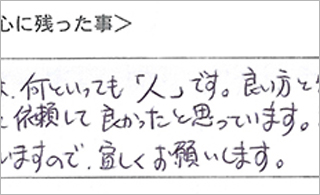 心に残った事＞
、何といっても「人」です。良い方と
依頼して良かったと思っています。
ますので、宜しくお願いします。